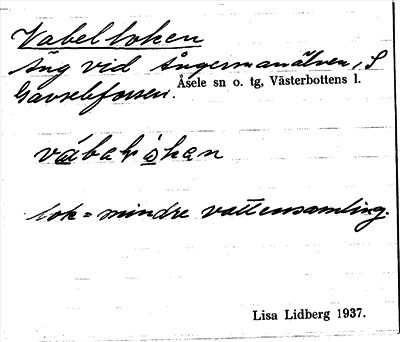 Väbelloken
Äng vid Ångermanälven, S
Gavselforsen. Åsele sn o. tg, Västerbottens l.
lok = mindre vattensamling.
Lisa Lidberg 1937.